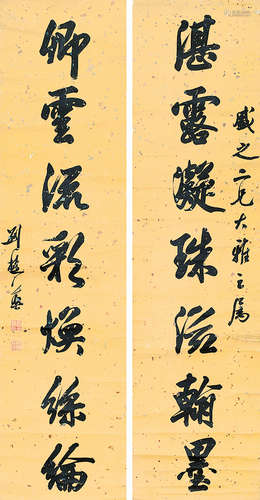 盛之二兄大雅之属
湛露凝珠滋翰墨
卿雲流彩煥絲綸
劉楚英